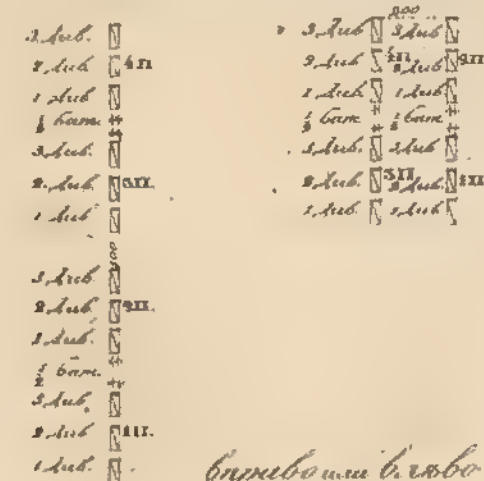 3 Див.
2 Див. 4П
1 Див
½ бат.
3 Див.
2 Див. 3П.
1 Див
3 Див
2 Див. 2П.
1 Див.
½ бат.
3 Див.
2 Див 1П.
1 Див.
3 Див 3 Див
2 Див 4П 2 Див 2П
1 Див 1 Див
½ бат ½ бат
3 Див. 3 Див
2 Див 3П 2 Див 1П
1 Див 1 Див
или